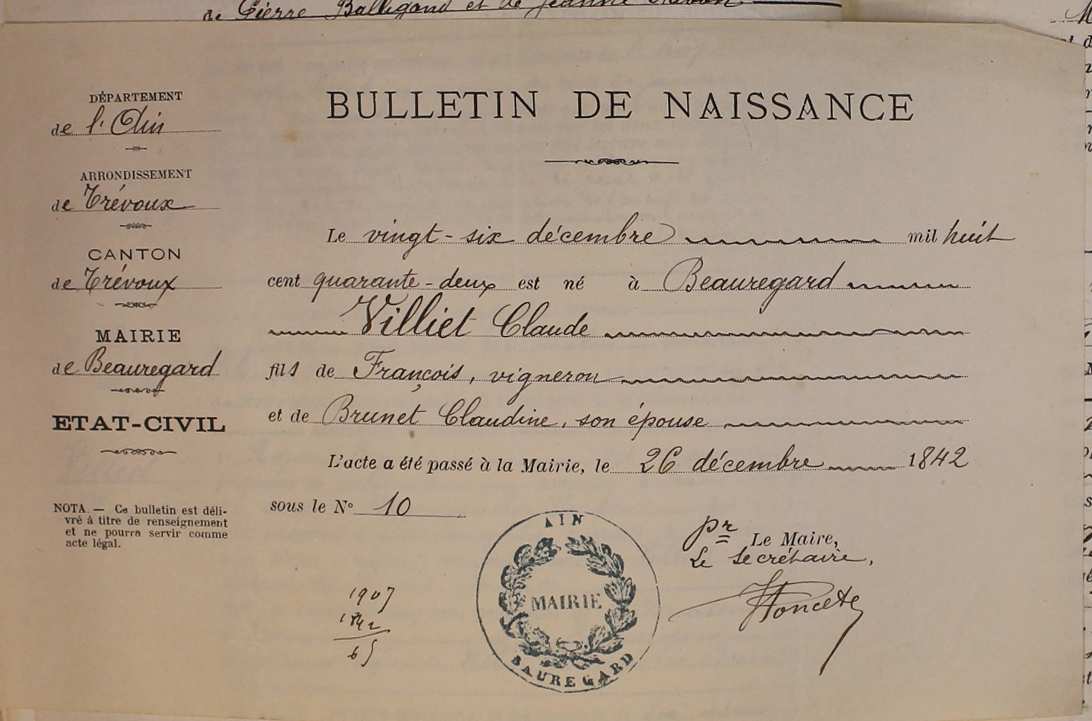 de Pierre Balligand et de Jeanne
DÉPARTEMENT
de l'Ain
ARRONDISSEMENT
de Trévoux
CANTON
de Trévoux
MAIRIE
de Beauregard
ETAT-CIVIL
NOTA. — Ce bulletin est déli-
vré à titre de renseignement
et ne pourra servir comme
acte légal.
BULLETIN DE NAISSANCE
Le vingt-six décembre mil huit
cent quarante-deux est né à Beauregard
Villiet Claude
fils de François, vigneron
et de Brunet Claudine, son épouse
L'acte a été passé à la Mairie, le 26 décembre 1842
sous le N° 10
pr Le Maire,
Le secrétaire,
1907
1842
65
AIN
MAIRIE
BAUREGARD